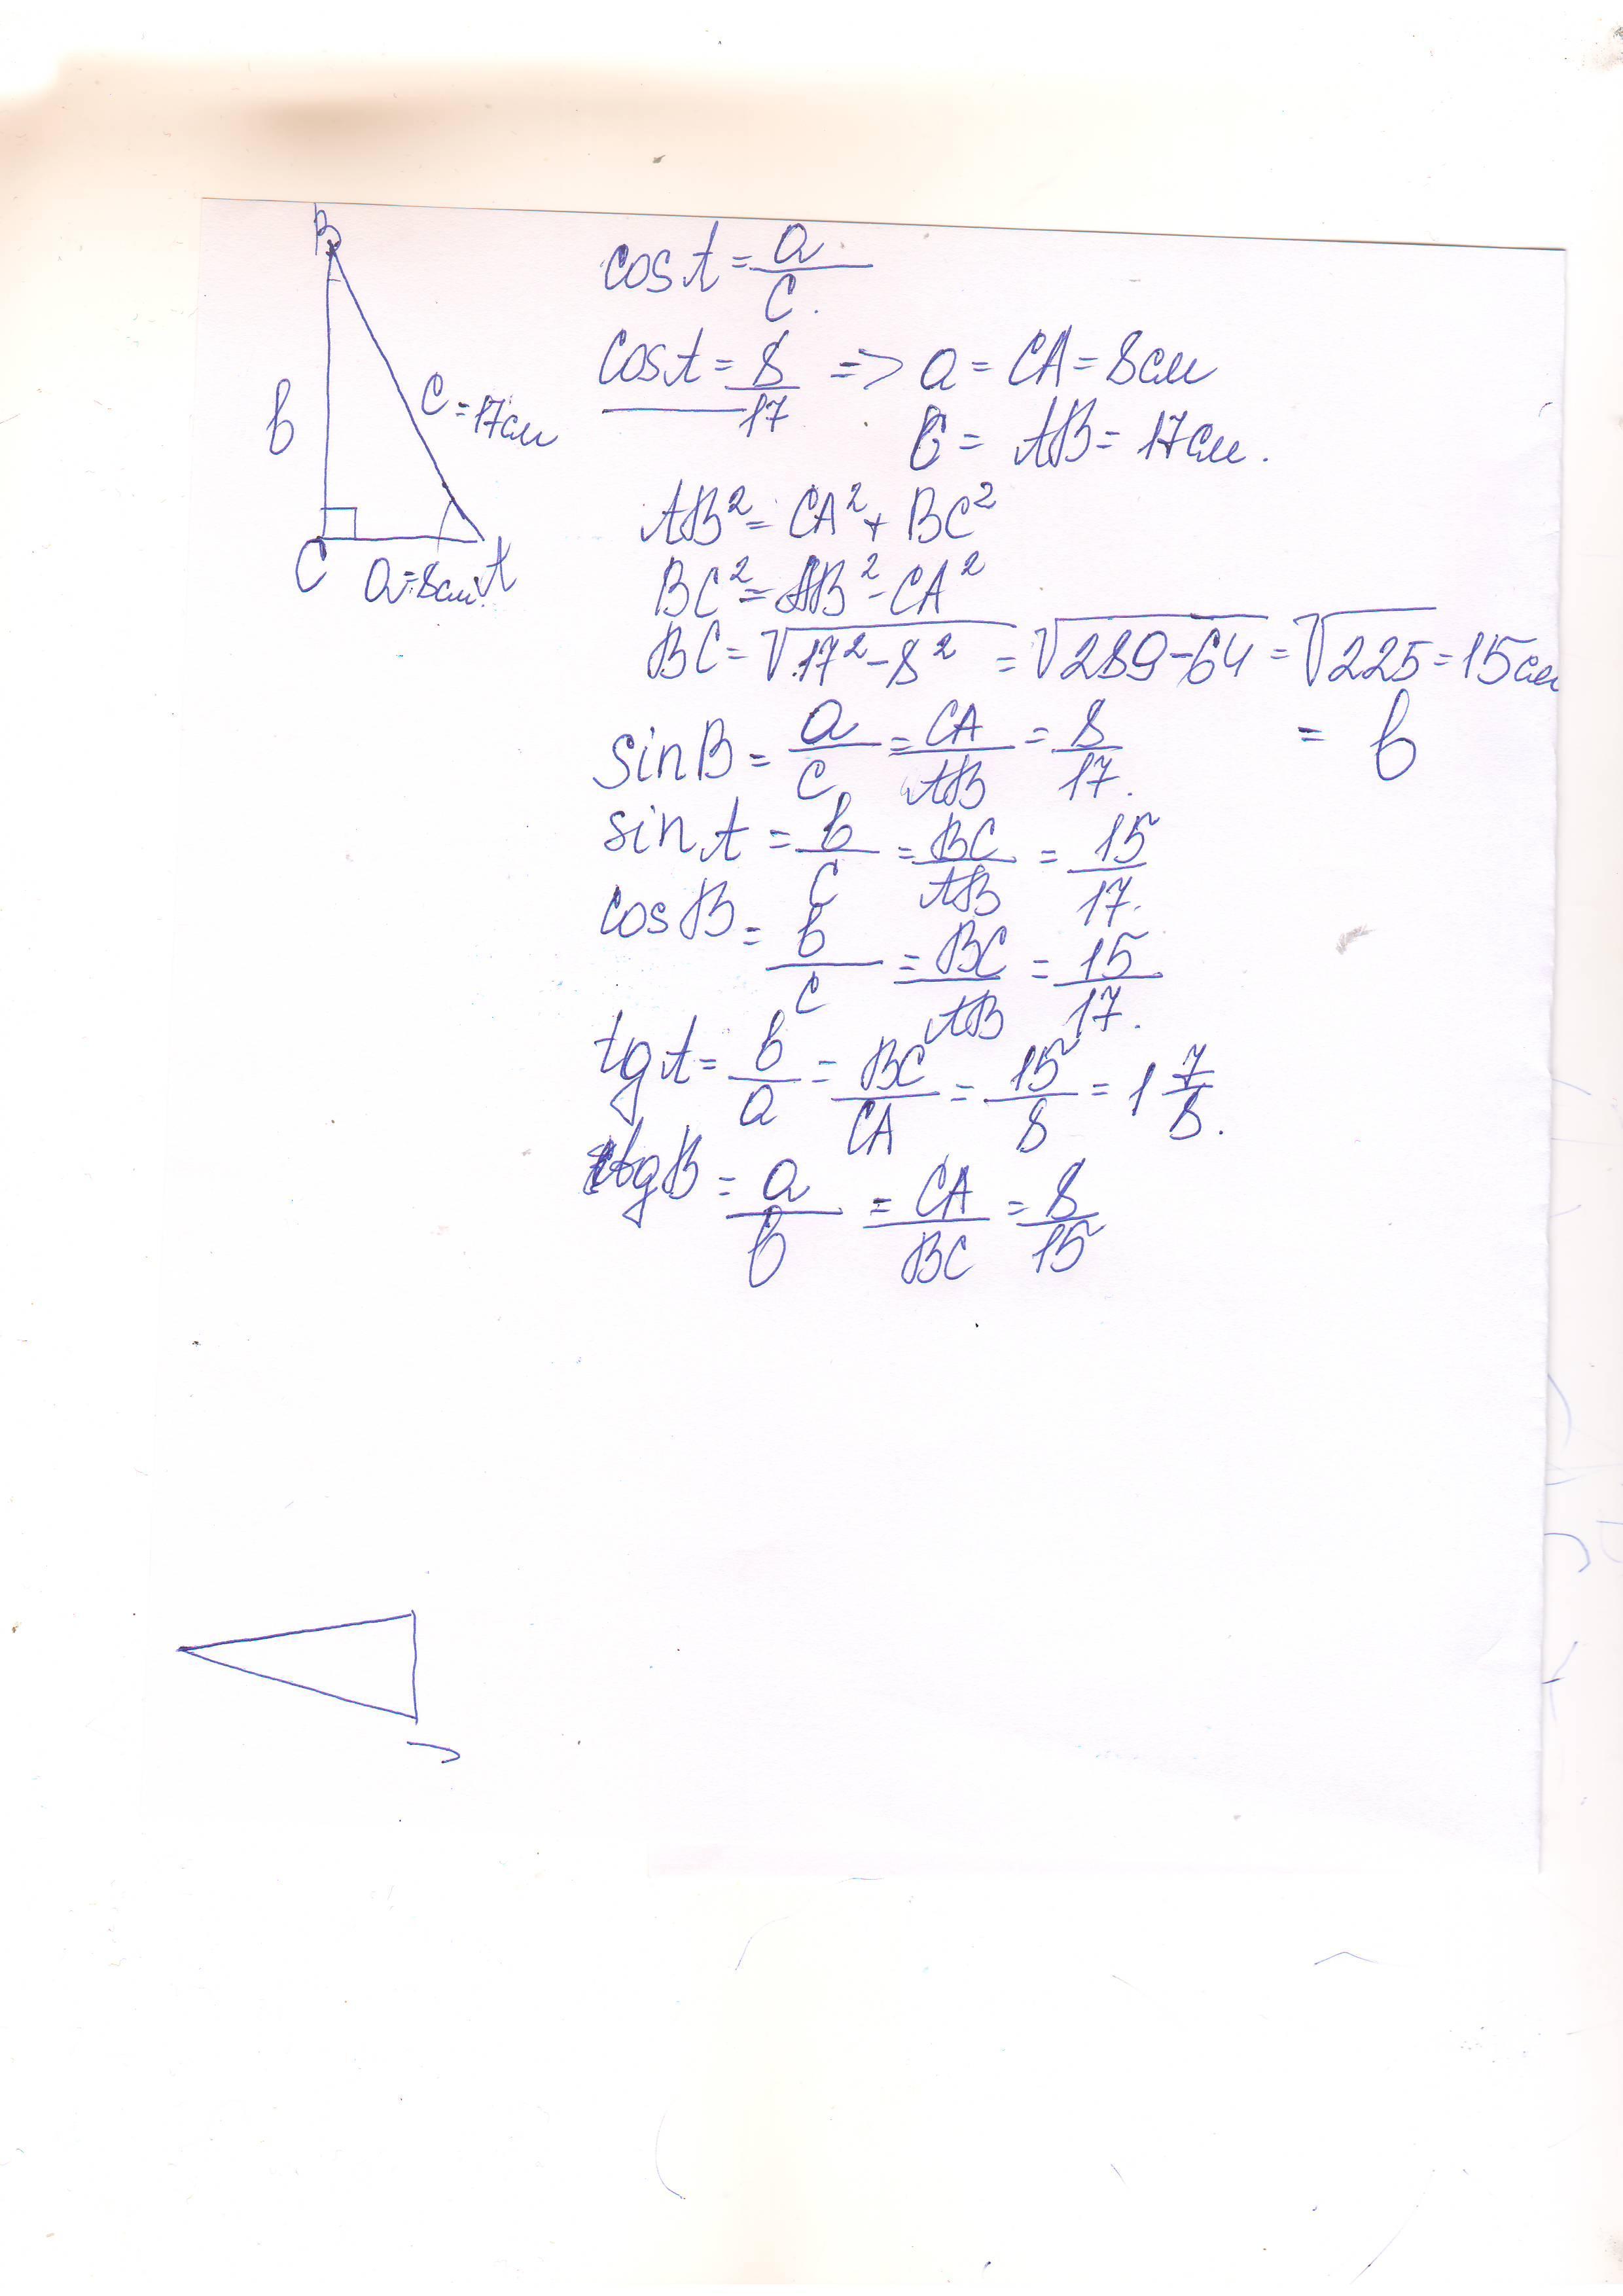 B
b
c = 17см
C
a = 8см
A
cos A = a/c.
cos A = 8/17 => a = CA = 8см
c = AB = 17см.
AB² = CA² + BC²
BC² = AB² - CA²
BC = √17² - 8² = √289 - 64 = √225 = 15см
= b
sin B = a/c = CA/AB = 8/17.
sin A = b/c = BC/AB = 15/17.
cos B = b/c = BC/AB = 15/17.
tg A = b/a = BC/CA = 15/8 = 1 7/8.
tg B = a/b = CA/BC = 8/15